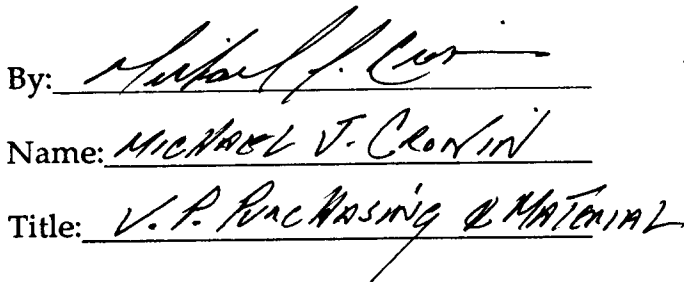 By: Michael J. Cronin
Name: MICHAEL J. CRONIN
Title: V. P. PURCHASING & MATERIAL